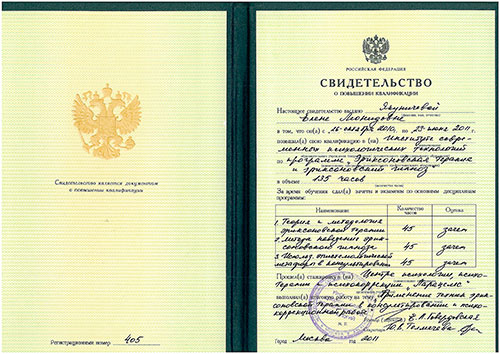 Свидетельство является документом
о повышении квалификации
Регистрационный номер 405
РОССИЙСКАЯ ФЕДЕРАЦИЯ
СВИДЕТЕЛЬСТВО
О ПОВЫШЕНИИ КВАЛИФИКАЦИИ
Настоящее свидетельство выдано
Елене Леонидовне
в том, что он(а) с 2010 г. по 23 июня 2011 г.
повышал(а) свою квалификацию в Институте совре-
менных психологических технологий
по программе „Эриксоновская терапия
и эриксоновский гипноз"
в объеме 135 часов
За время обучения сдал(а) зачеты и экзамены по основным дисциплинам
программы:
Наименование Количество часов Оценка
1. Теория и методология
эриксоновской терапии 45 зачет
2. наведения эрик-
соновского гипноза 45 зачет
3.
метафоры в консультировании 45 зачет
Прошел(а) стажировку в (на) Центре психологии, психо-
терапии и психокоррекции „Парацельс"
выполнил(а) итоговую работу на тему: Применение техник эрик-
соновской терапии в консультировании и психо-
коррекционной работе
Город Москва 2011